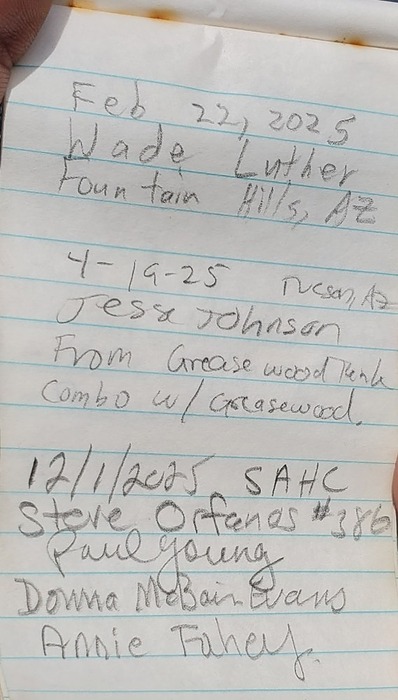 Feb 22, 2025
Wade Luther
Fountain Hills, AZ
4-19-25 Tucson, AZ
Jesse Johnson
From Greasewood Tank
Combo w/ Greasewood.
12/1/2025 SAHC
Steve Orfanos #386
Paul Young
Donna McBain Evans
Annie Fahey.